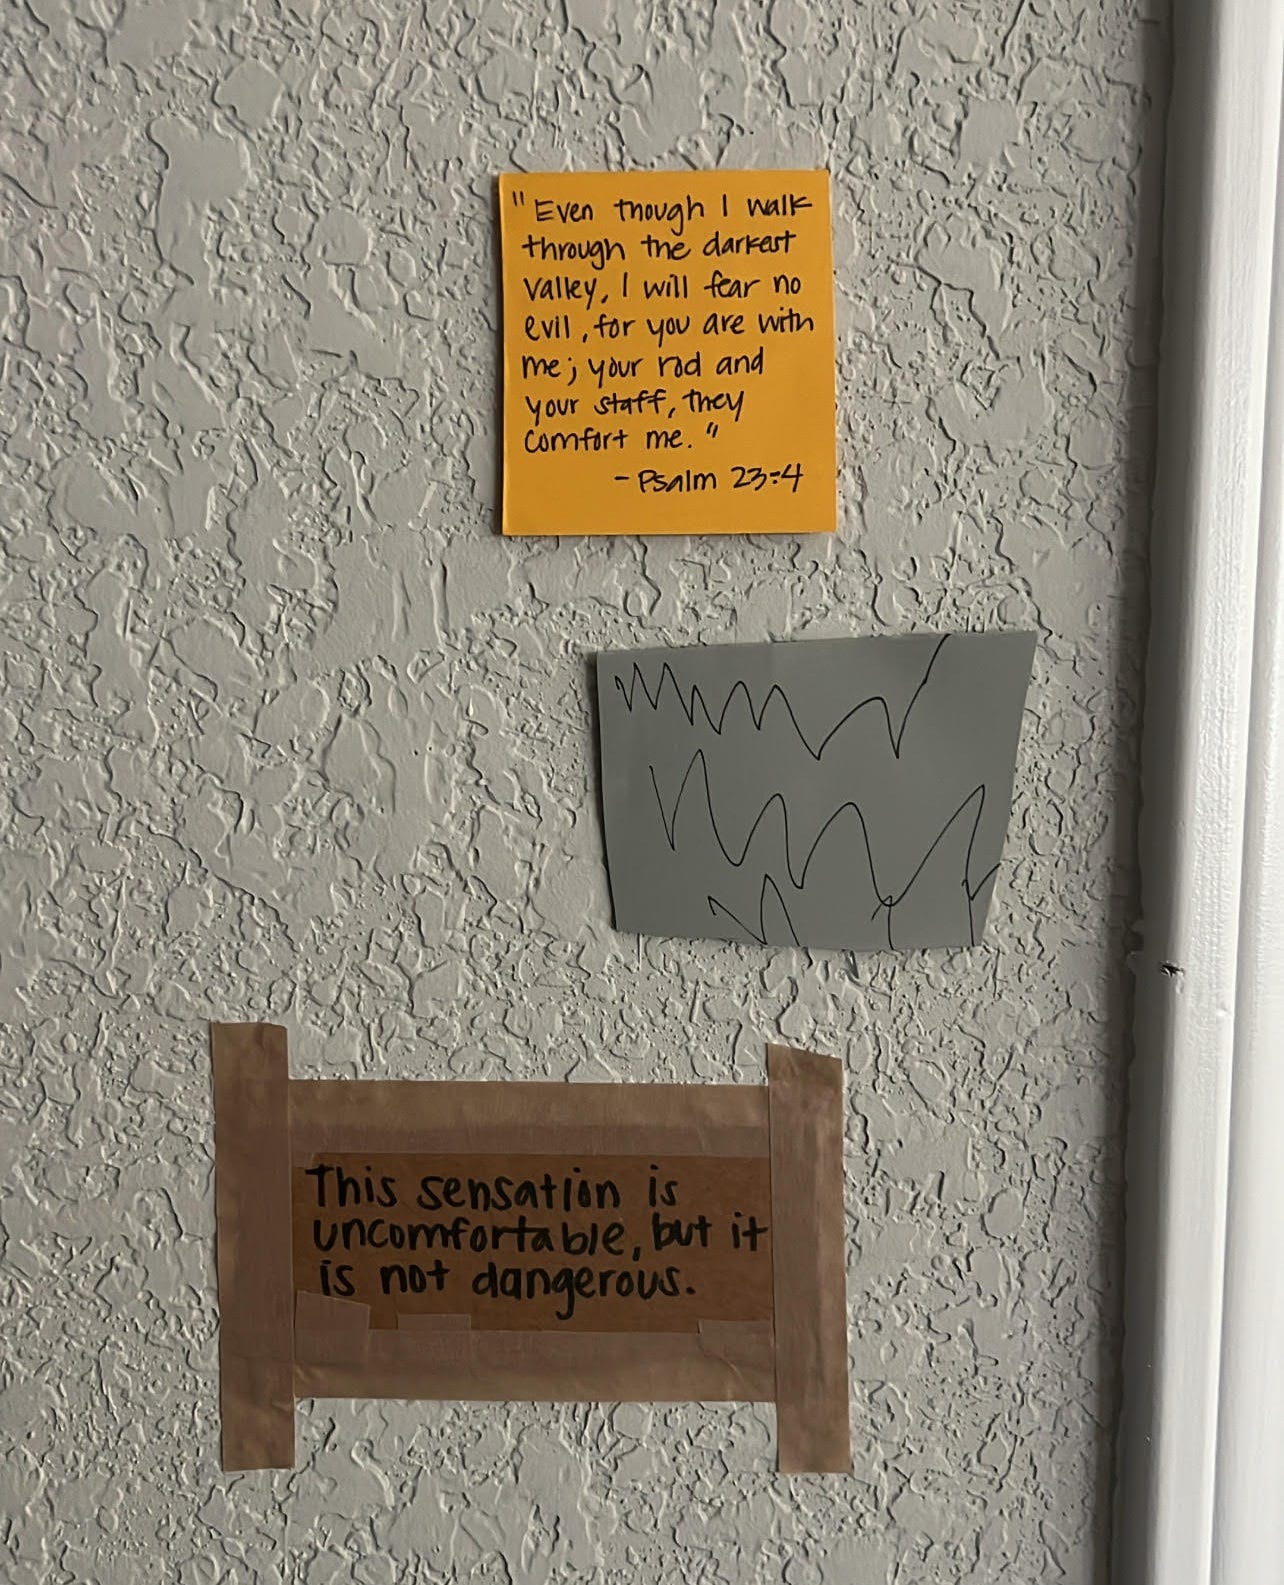 "Even though I walk
through the darkest
valley, I will fear no
evil, for you are with
me; your rod and
your staff, they
comfort me."
- Psalm 23:4
This sensation is
uncomfortable, but it
is not dangerous.